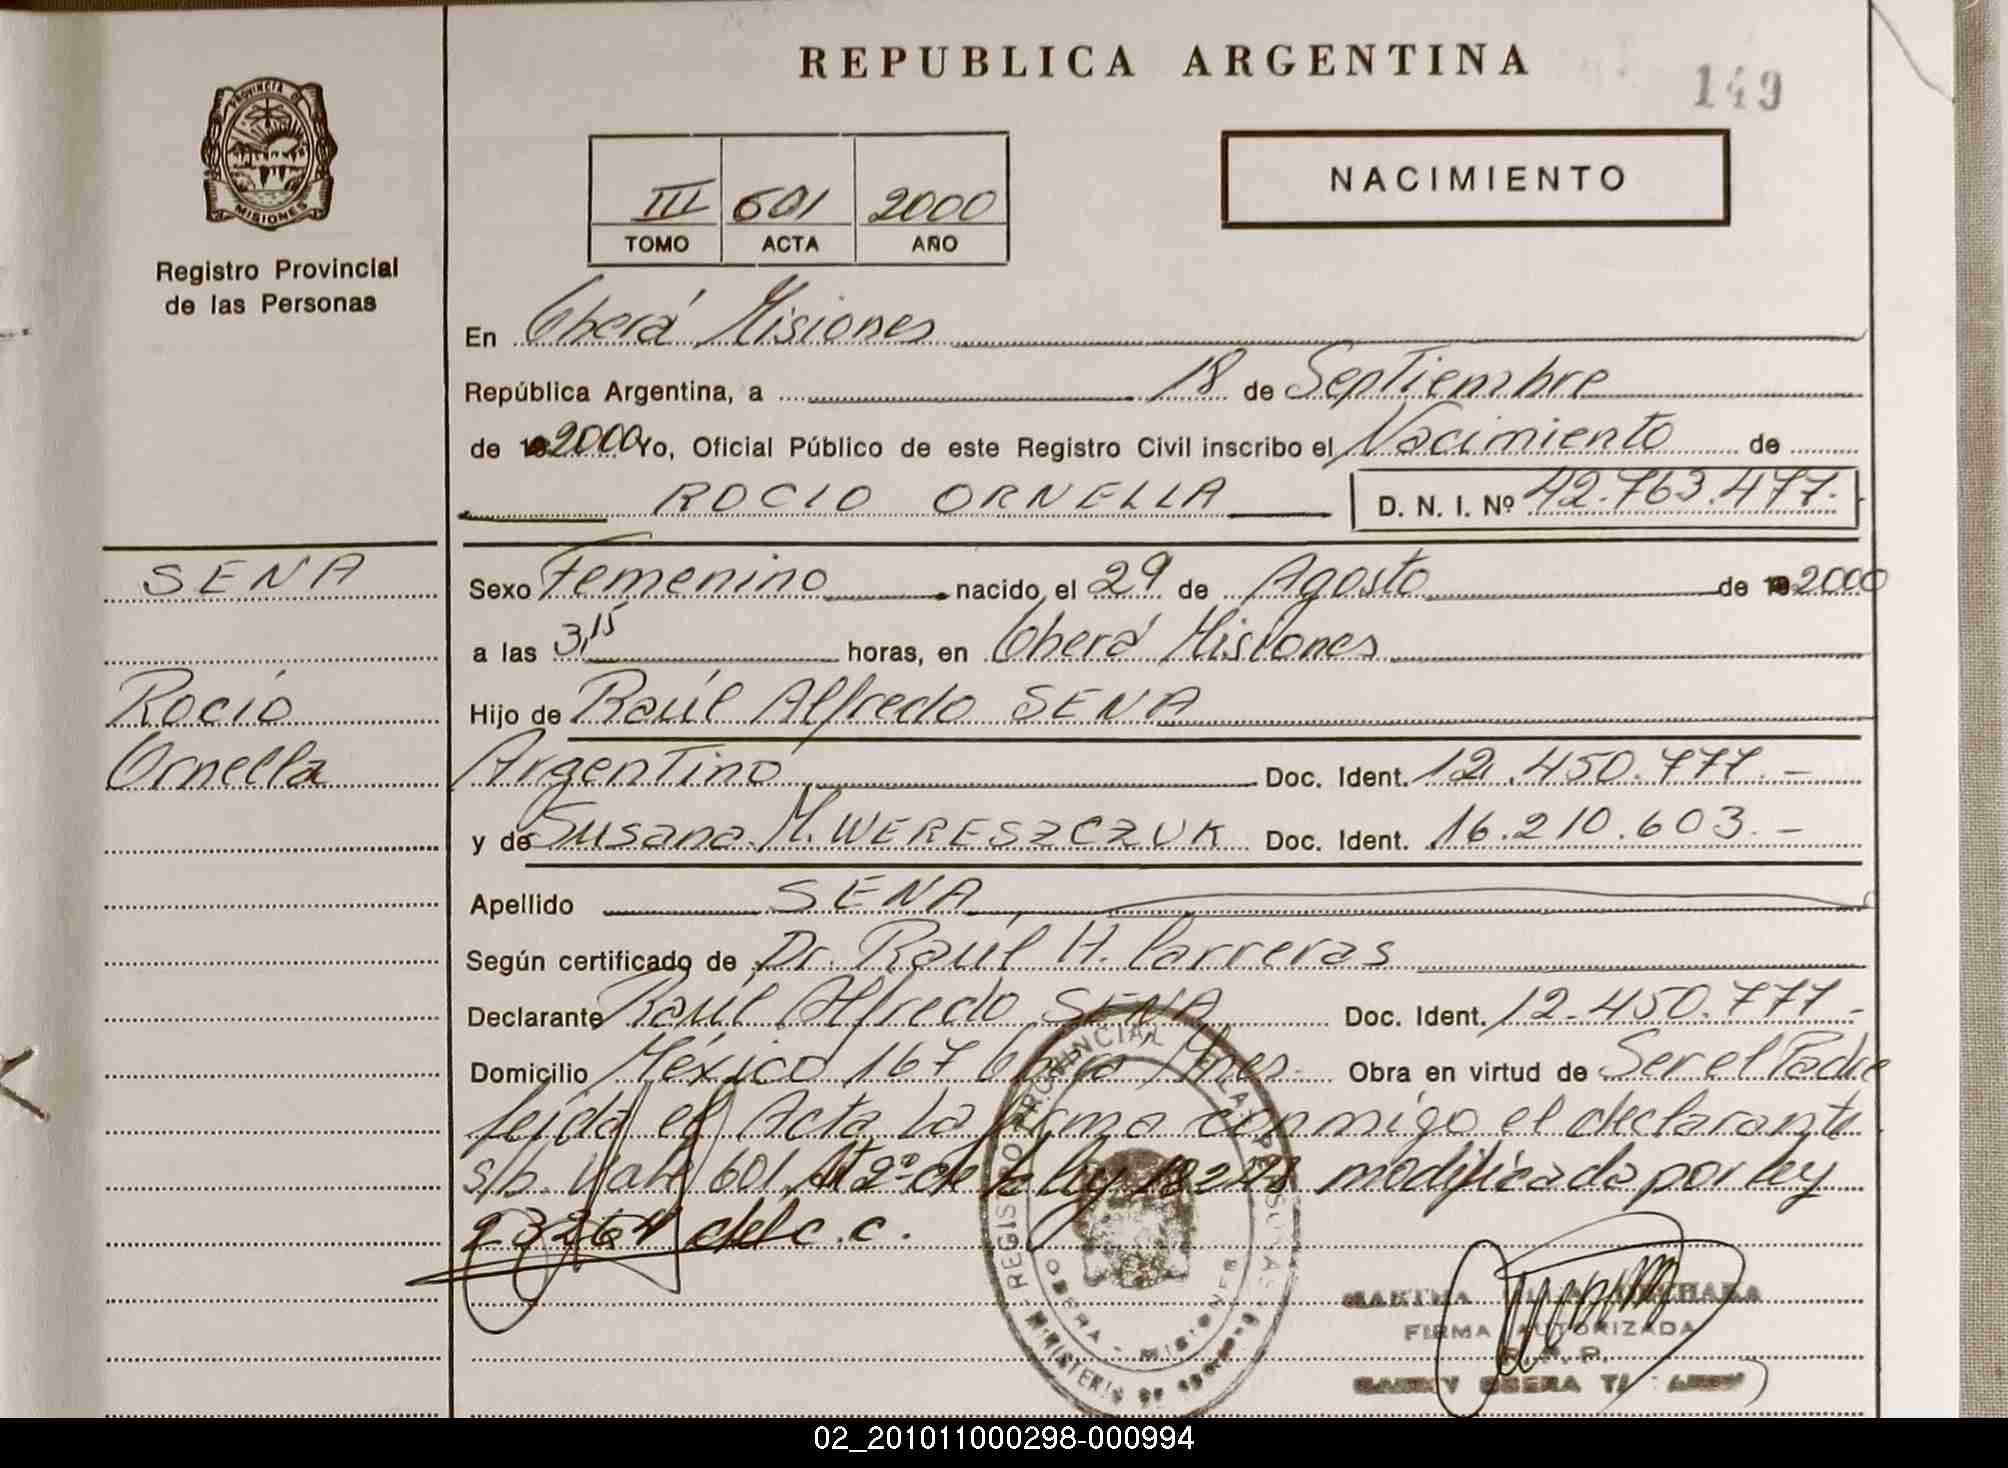 REPUBLICA ARGENTINA
149
PROVINCIA DE
MISIONES
Registro Provincial
de las Personas
III 601 2000
TOMO ACTA AÑO
NACIMIENTO
En Oberá Misiones
República Argentina, a 18 de Septiembre
de 2000 Yo, Oficial Público de este Registro Civil inscribo el Nacimiento de
ROCIO ORNELLA D. N. I. Nº 42.763.477.
SENA
Rocío
Ornella
Sexo Femenino nacido el 29 de Agosto de 2000
a las 3,15 horas, en Oberá Misiones
Hijo de Raúl Alfredo SENA
Argentino Doc. Ident. 12.450.777.-
y de Susana M. WERESZCZUK Doc. Ident. 16.210.603.-
Apellido SENA
Según certificado de Dr. Raúl H. Carreras
Declarante Raúl Alfredo SENA Doc. Ident. 12.450.777-
Domicilio México 167 Oberá Mnes. Obra en virtud de Ser el Padre
leída el Acta la firma conmigo el declarante
s/b. Vale 601. Art 2º de la ley 18248 modificada por ley
23264 del c.c.
REGISTRO PROVINCIAL DE LAS PERSONAS
OBERA - MISIONES
MINISTERIO DE GOBIERNO
MARTHA
FIRMA AUTORIZADA
R. P. P.
OBERA
02_201011000298-000994